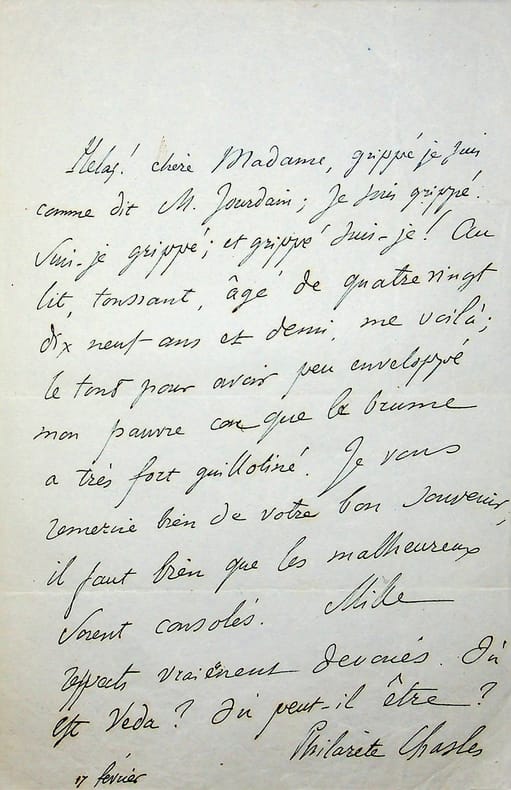 Helas! chère Madame, grippé je suis
comme dit M. Jourdain; Je suis grippé!
Suis-je grippé; et grippé suis-je! Au
lit, toussant, âgé de quatrevingt
dix neuf ans et demi, me voilà;
le tout pour avoir peu enveloppé
mon pauvre cou que la brume
a très fort guillotiné. Je vous
remercie bien de votre bon souvenir,
il faut bien que les malheureux
soient consolés. Mille
respects vraiement devoués. Où
est Veda? Où peut-il être?
Philarète Chasles
17 fevrier